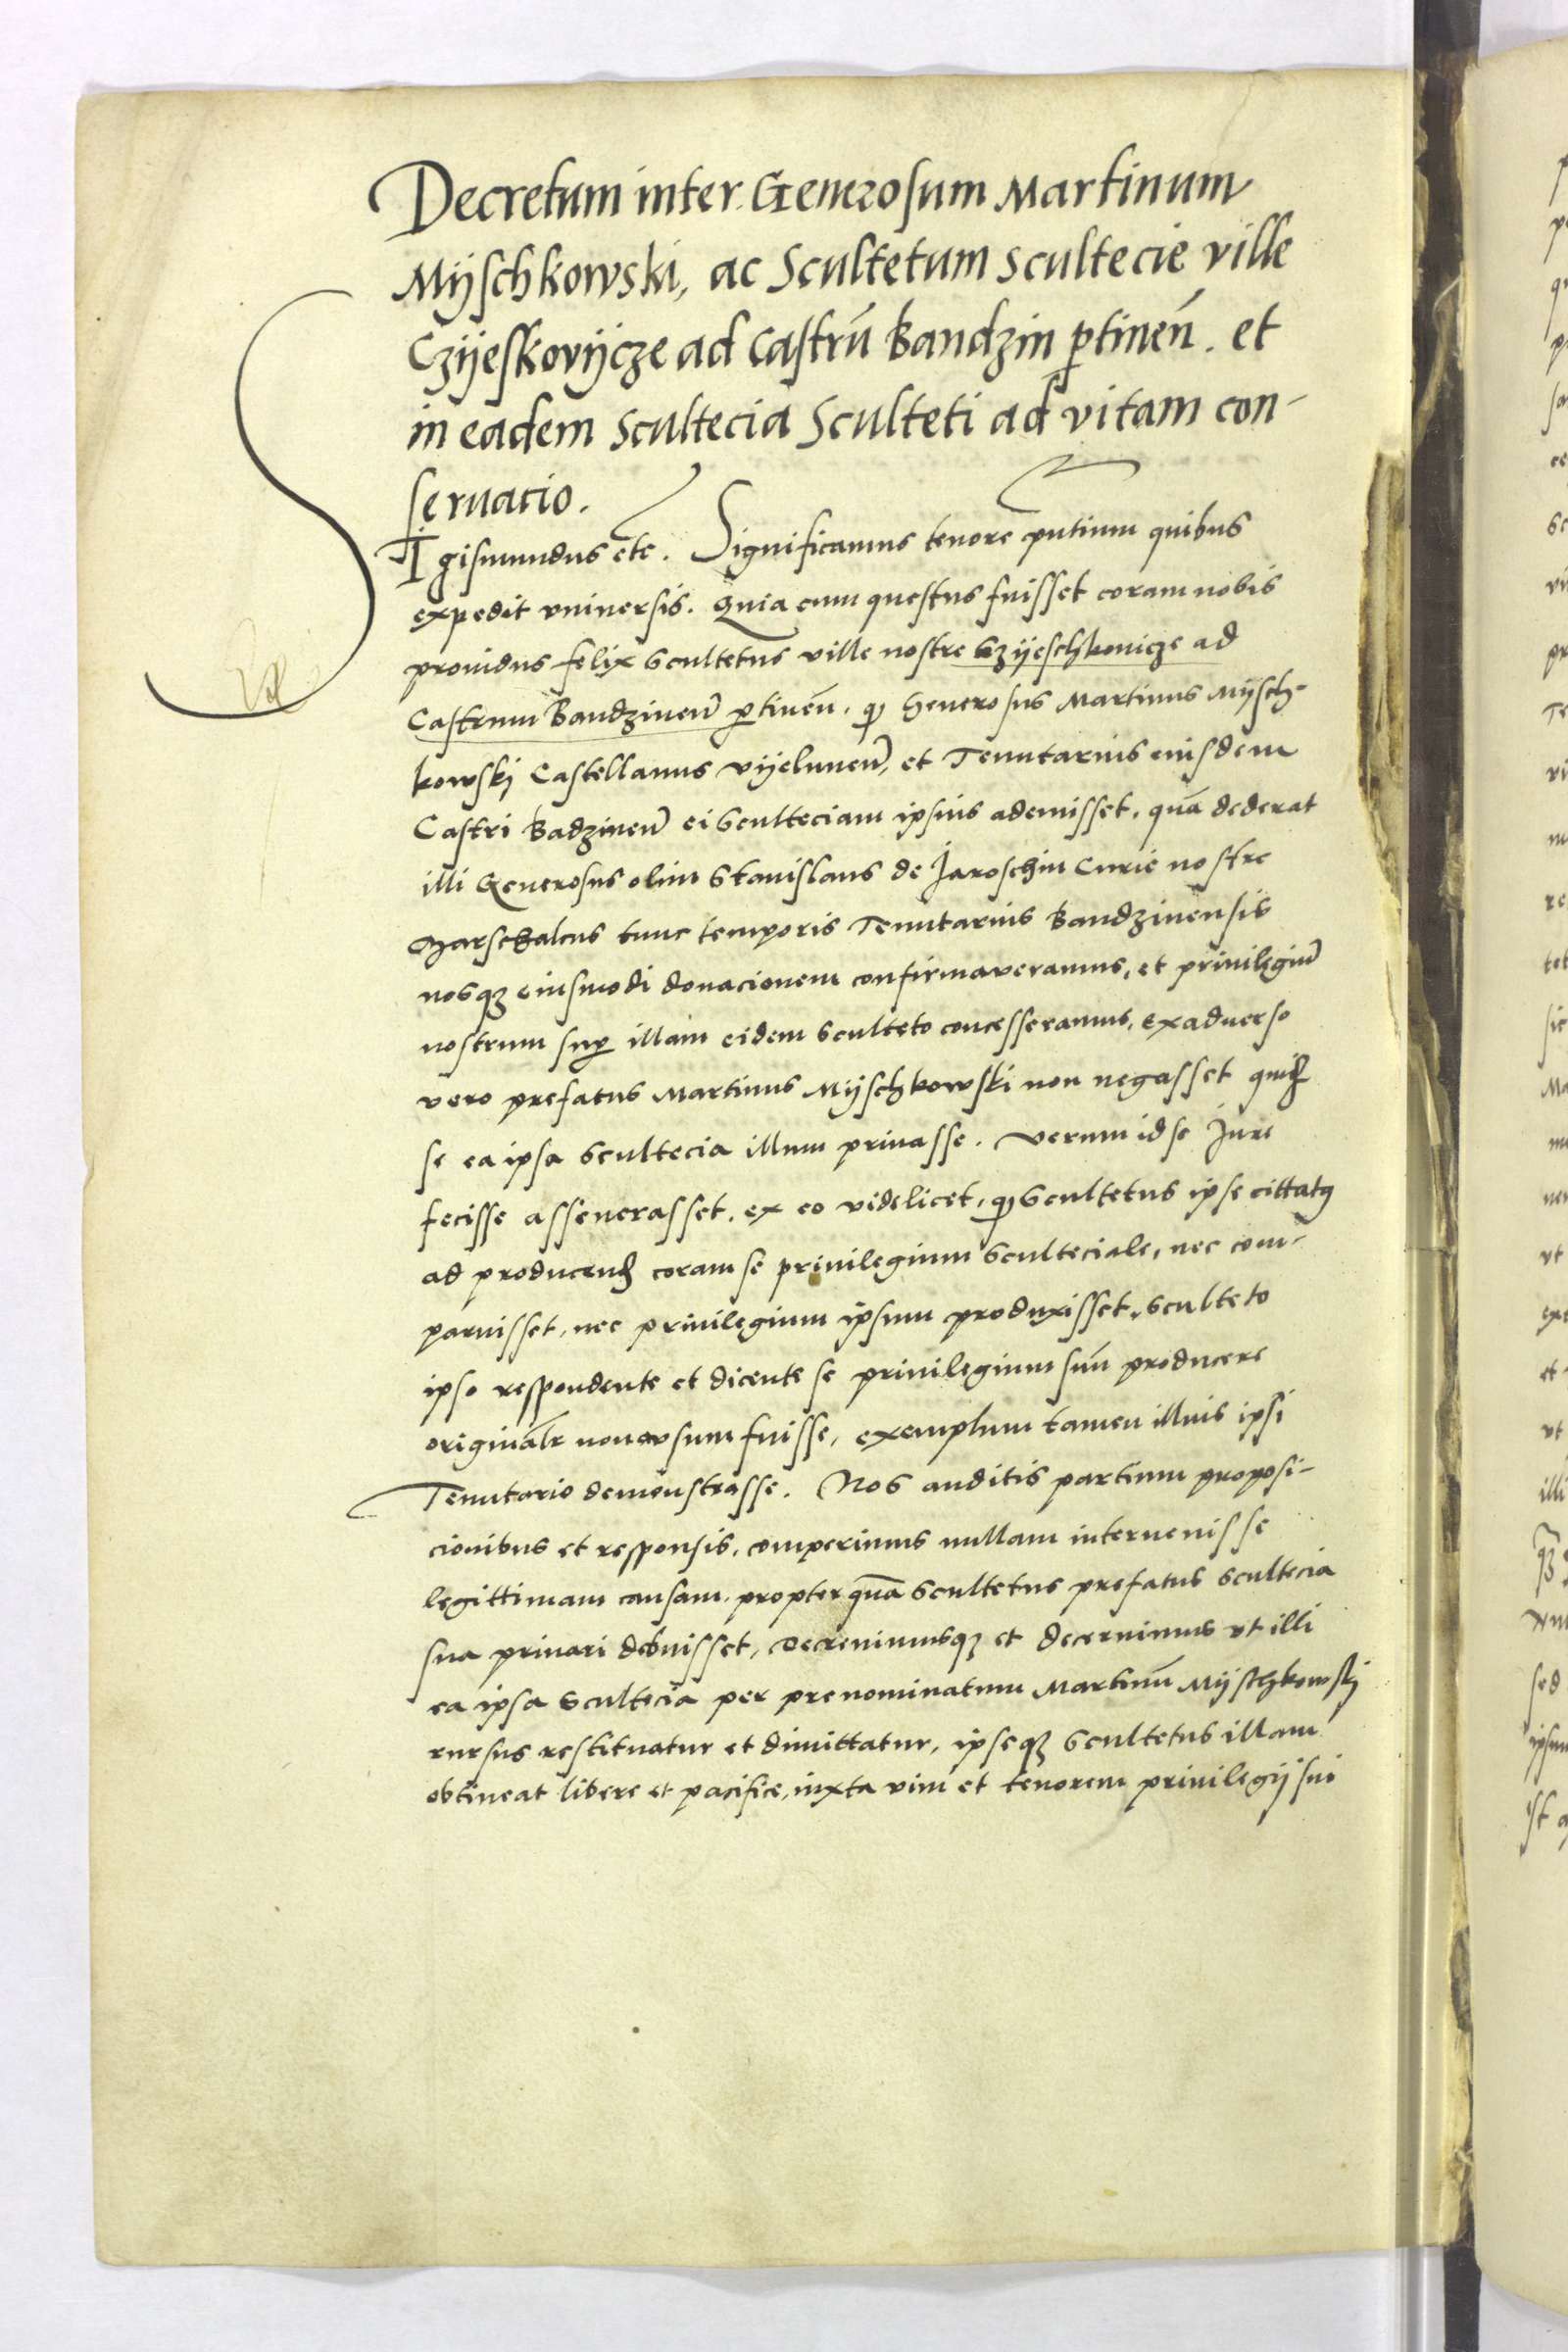 Decretum inter Generosum Martinum
Mÿschkowski, ac Scultetum Scultecie ville
Czÿeskovÿcze ad Castrũ Bandzin ptineñ. et
in eadem Scultecia Sculteti ad vitam con-
seruacio.
SIgismundus etc. Significamus tenore pntium quibus
expedit vniuersis. Quia cum questus fuisset coram nobis
prouidus felix Scultetus ville nostre Czÿeschkouicze ad
Castrum Bandzineñ ptineñ. qꝫ Generosus Martinus Mÿsch-
kowski Castellanus vÿeluneñ, et Tenutarius eiusdem
Castri Badzineñ ei Sculteciam ipsius ademisset, quã dederat
illi Generosus olim Stanislaus de Jaroschin Curie nostre
Marschalcus tunc temporis Tenutarius Bandzinensis
nosqꝫ eiusmodi donacionem confirmaveramus, et priuilegiũ
nostrum sup illam eidem Sculteto concesseramus, Exaduerso
vero prefatus Martinus Mÿschkowski non negasset quidẽ
se ea ipsa Scultecia illum priuasse. verum id se Jure
fecisse asseuerasset, ex eo videlicet, qꝫ Scultetus ipse cittatꝰ
ad producenđ coram se priuilegium Sculteciale, nec com-
paruisset, nec priuilegium ipsum produxisset, Sculteto
ipso respondente et dicente se priuilegium suũ producere
originale non ausum fuisse, exemplum tamen illius ipsi
Tenutario demonstrasse. Nos auditis partium proposi-
cionibus et responsis, comperimus nullam interuenisse
legittimam causam, propter quã Scultetus prefatus Scultecia
sua priuari debuisset, Decreuimusqꝫ et decernimus vt illi
ea ipsa Scultecia per prenominatum Martinũ Mÿschkowskj
rursus restituatur et dimittatur, ipseqꝫ Scultetus illam
obtineat libere et pacifice, iuxta vim et tenorem priuilegij sui